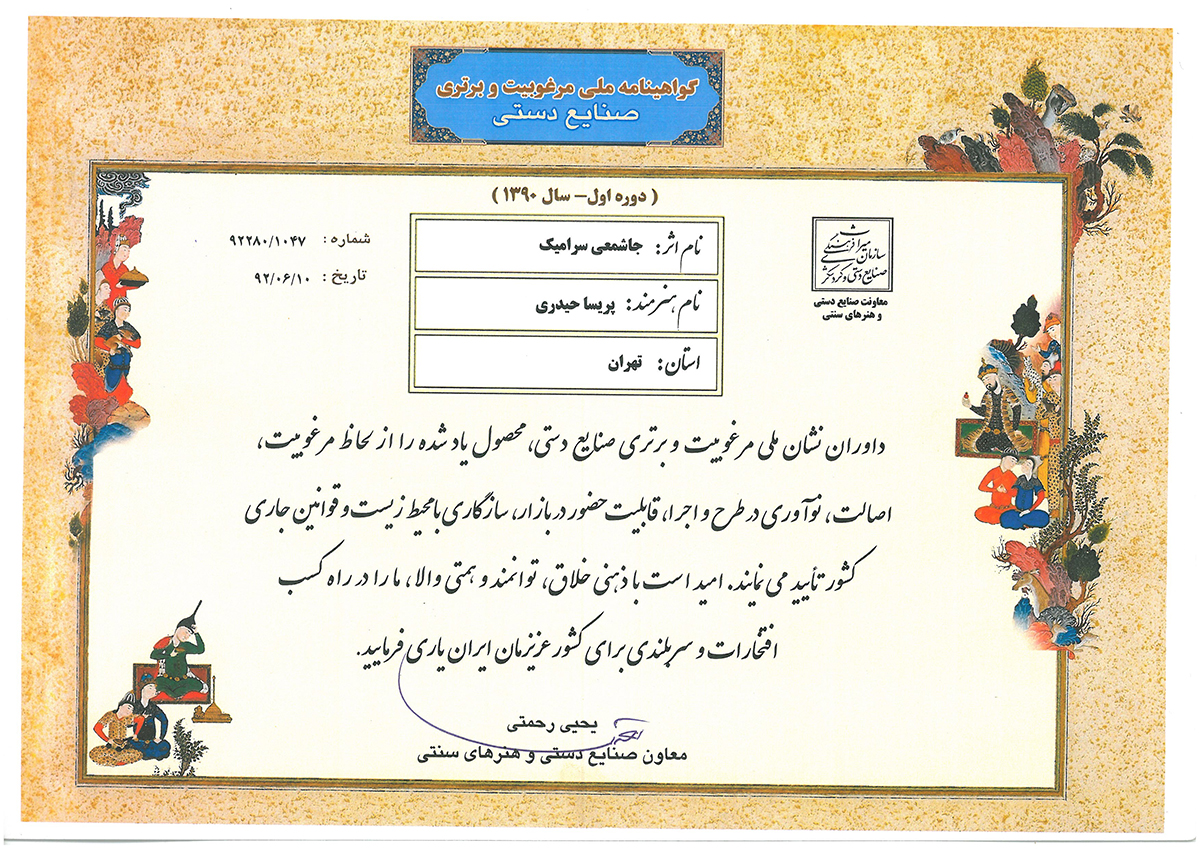 گواهینامه ملی مرغوبیت و برتری
صنایع دستی
( دوره اول– سال ۱۳۹۰ )
سازمان میراث فرهنگی
صنایع دستی و گردشگری
معاونت صنایع دستی
و هنرهای سنتی
نام اثر: جاشمعی سرامیک
نام هنرمند: پریسا حیدری
استان: تهران
شماره: ۹۲۲۸۰/۱۰۴۷
تاریخ: ۹۲/۰۶/۱۰
داوران نشان ملی مرغوبیت و برتری صنایع دستی، محصول یاد شده را از لحاظ مرغوبیت،
اصالت، نوآوری در طرح و اجرا، قابلیت حضور در بازار، سازگاری با محیط زیست و قوانین جاری
کشور تأیید می نمایند. امید است با ذهنی خلاق، توانمند و همتی والا، ما را در راه کسب
افتخارات و سربلندی برای کشور عزیزمان ایران یاری فرمایید.
یحیی رحمتی
معاون صنایع دستی و هنرهای سنتی